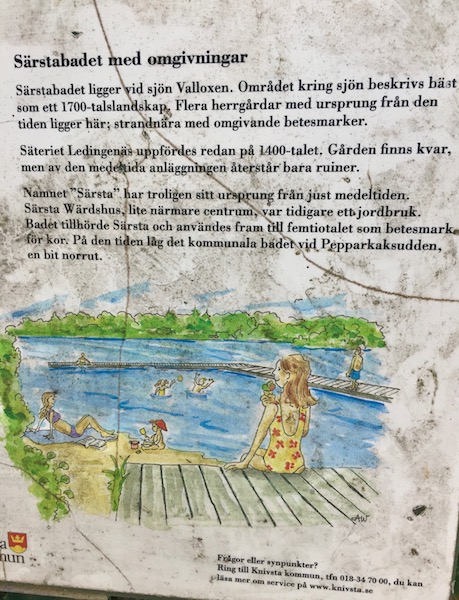 Särstabadet med omgivningar
Särstabadet ligger vid sjön Valloxen. Området kring sjön beskrivs bäst
som ett 1700-talslandskap. Flera herrgårdar med ursprung från den
tiden ligger här; strandnära med omgivande betesmarker.
Säteriet Ledingenäs uppfördes redan på 1400-talet. Gården finns kvar,
men av den medeltida anläggningen återstår bara ruiner.
Namnet "Särsta" har troligen sitt ursprung från just medeltiden.
Särsta Wärdshus, lite närmare centrum, var tidigare ett jordbruk.
Badet tillhörde Särsta och användes fram till femtiotalet som betesmark
för kor. På den tiden låg det kommunala badet vid Pepparkaksudden,
en bit norrut.
AW
a
mun
Frågor eller synpunkter?
Ring till Knivsta kommun, tfn 018-34 70 00, du kan
läsa mer om service på www.knivsta.se